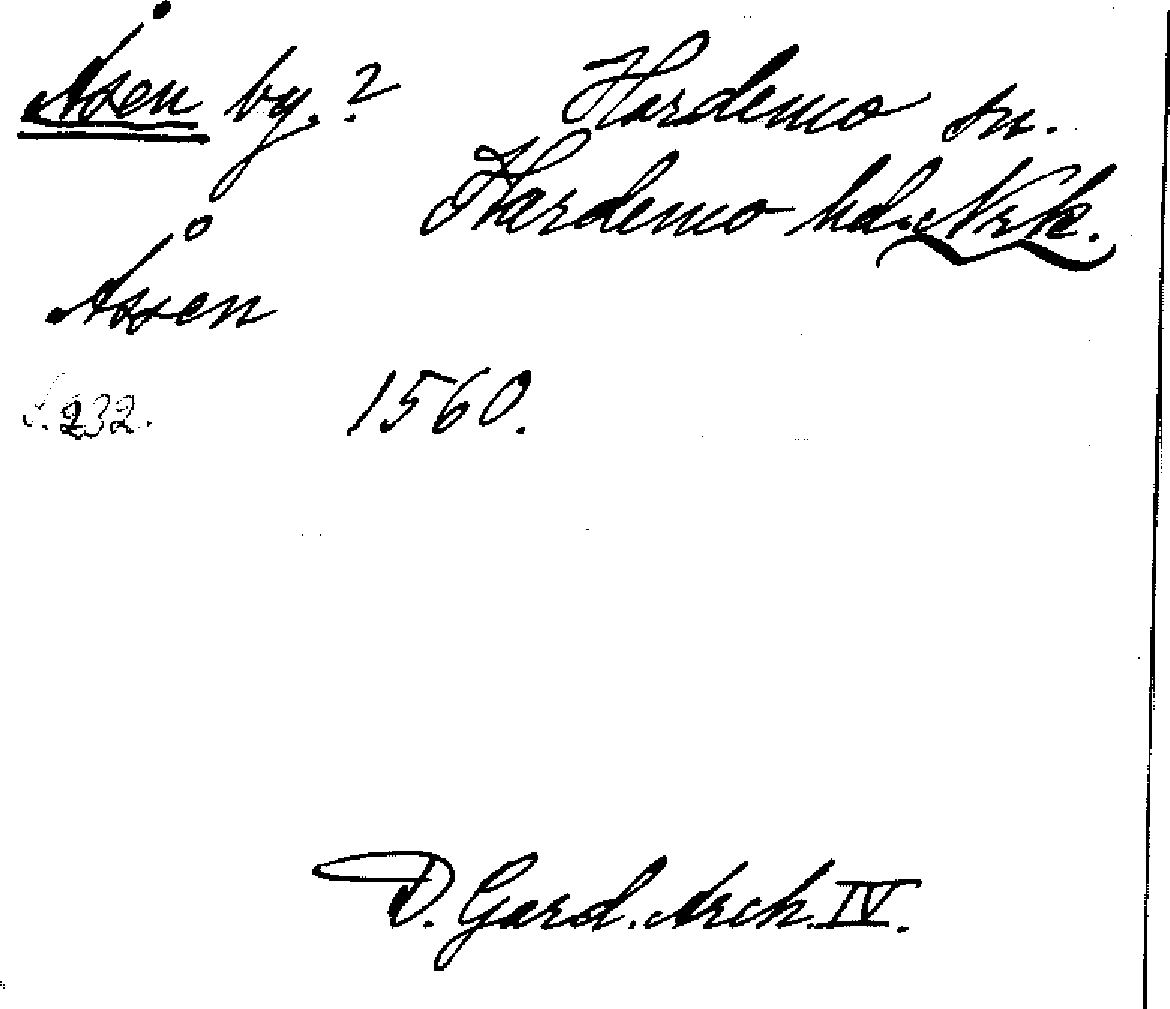 Åsen by.? Hardemo sn.
Hardemo hd. Nrk.
Åssen
S. 232. 1560.
D. Gard. Arch. IV.